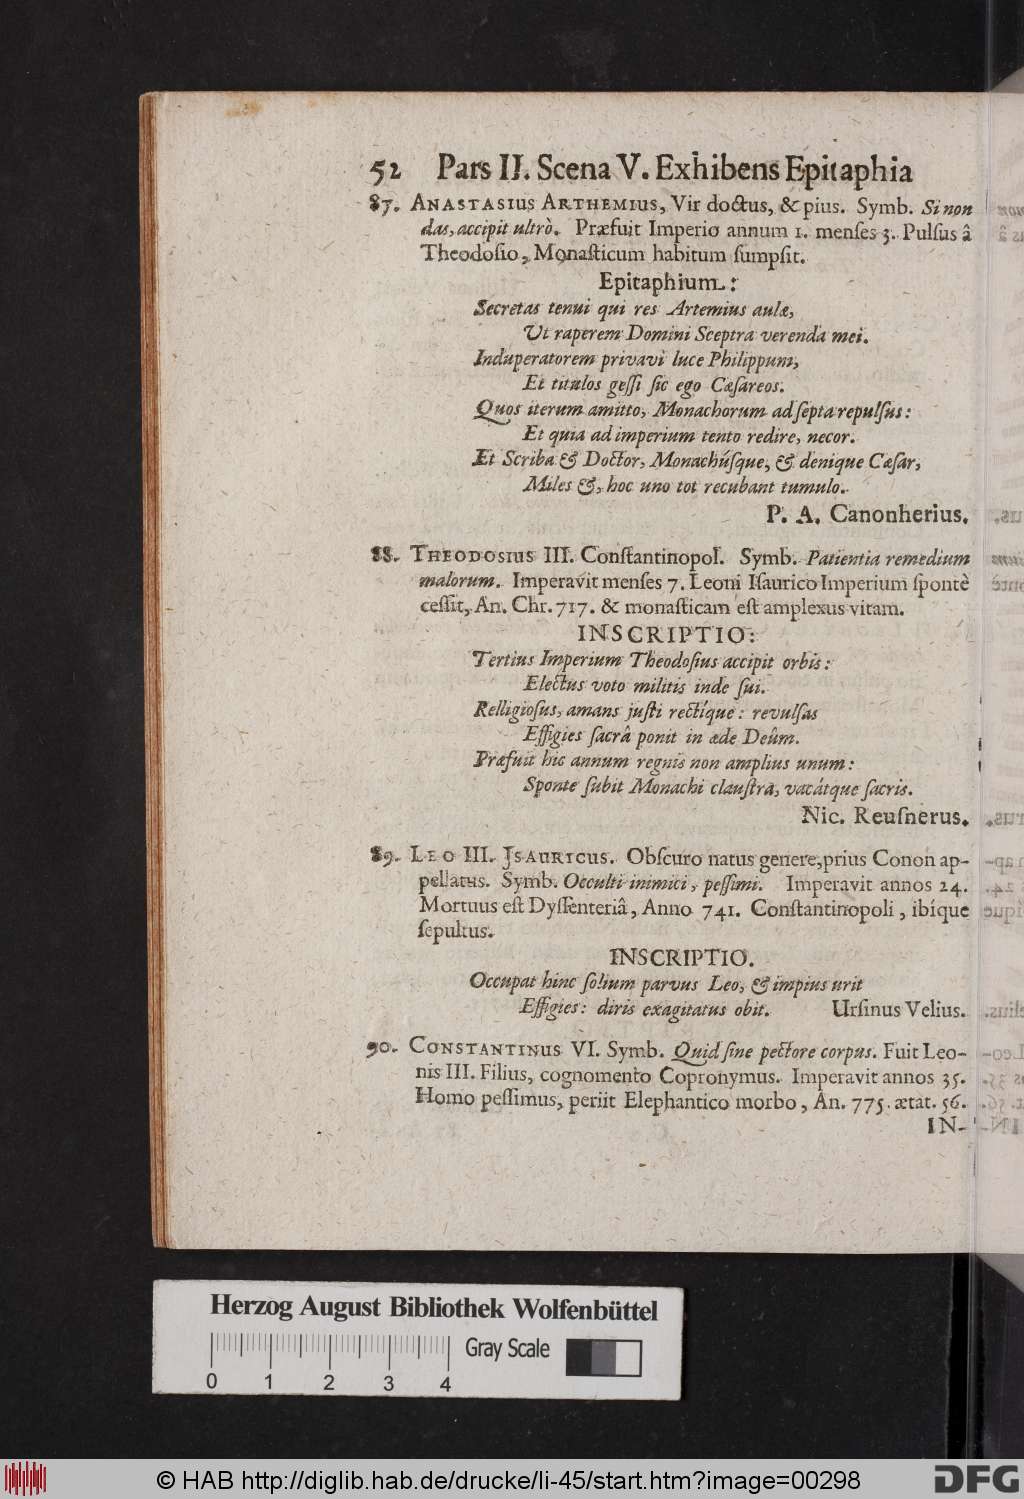 52 Pars II. Scena V. Exhibens Epitaphia
87. ANASTASIUS ARTHEMIUS, Vir doctus, & pius. Symb. Si non
das, accipit ultrò. Præfuit Imperio annum 1. menſes 3. Pulſus â
Theodoſio, Monaſticum habitum ſumpſit.
Epitaphium:
Secretas tenui qui res Artemius aulæ,
Ut raperem Domini Sceptra verenda mei.
Induperatorem privavi luce Philippum,
Et titulos geſſi ſic ego Cæſareos.
Quos iterum amitto, Monachorum ad ſepta repulſus:
Et quia ad imperium tento redire, necor.
Et Scriba & Doctor, Monachúſque, & denique Cæſar,
Miles &, hoc uno tot recubant tumulo.
P. A. Canonherius.
88. THEODOSIUS III. Conſtantinopol. Symb. Patientia remedium
malorum. Imperavit menſes 7. Leoni Iſaurico Imperium ſpontè
ceſſit, An. Chr. 717. & monaſticam eſt amplexus vitam.
INSCRIPTIO:
Tertius Imperium Theodoſius accipit orbis:
Electus voto militis inde ſui.
Relligioſus, amans juſti rectíque: revulſas
Effigies ſacrâ ponit in æde Deûm.
Præfuit hic annum regnis non amplius unum:
Sponte ſubit Monachi clauſtra, vacátque ſacris.
Nic. Reuſnerus.
89. LEO III. JSAURICUS. Obſcuro natus genere, prius Conon ap-
pellatus. Symb. Occulti inimici, peſſimi. Imperavit annos 24.
Mortuus eſt Dyſſenteriâ, Anno 741. Conſtantinopoli, ibíque
ſepultus.
INSCRIPTIO.
Occupat hinc ſolium parvus Leo, & impius urit
Effigies: diris exagitatus obit. Urſinus Velius.
90. CONSTANTINUS VI. Symb. Quid ſine pectore corpus. Fuit Leo-
nis III. Filius, cognomento Copronymus. Imperavit annos 35.
Homo peſſimus, periit Elephantico morbo, An. 775. ætat. 56.
IN-
Herzog August Bibliothek Wolfenbüttel
Gray Scale
0 1 2 3 4
© HAB http://diglib.hab.de/drucke/li-45/start.htm?image=00298
DFG